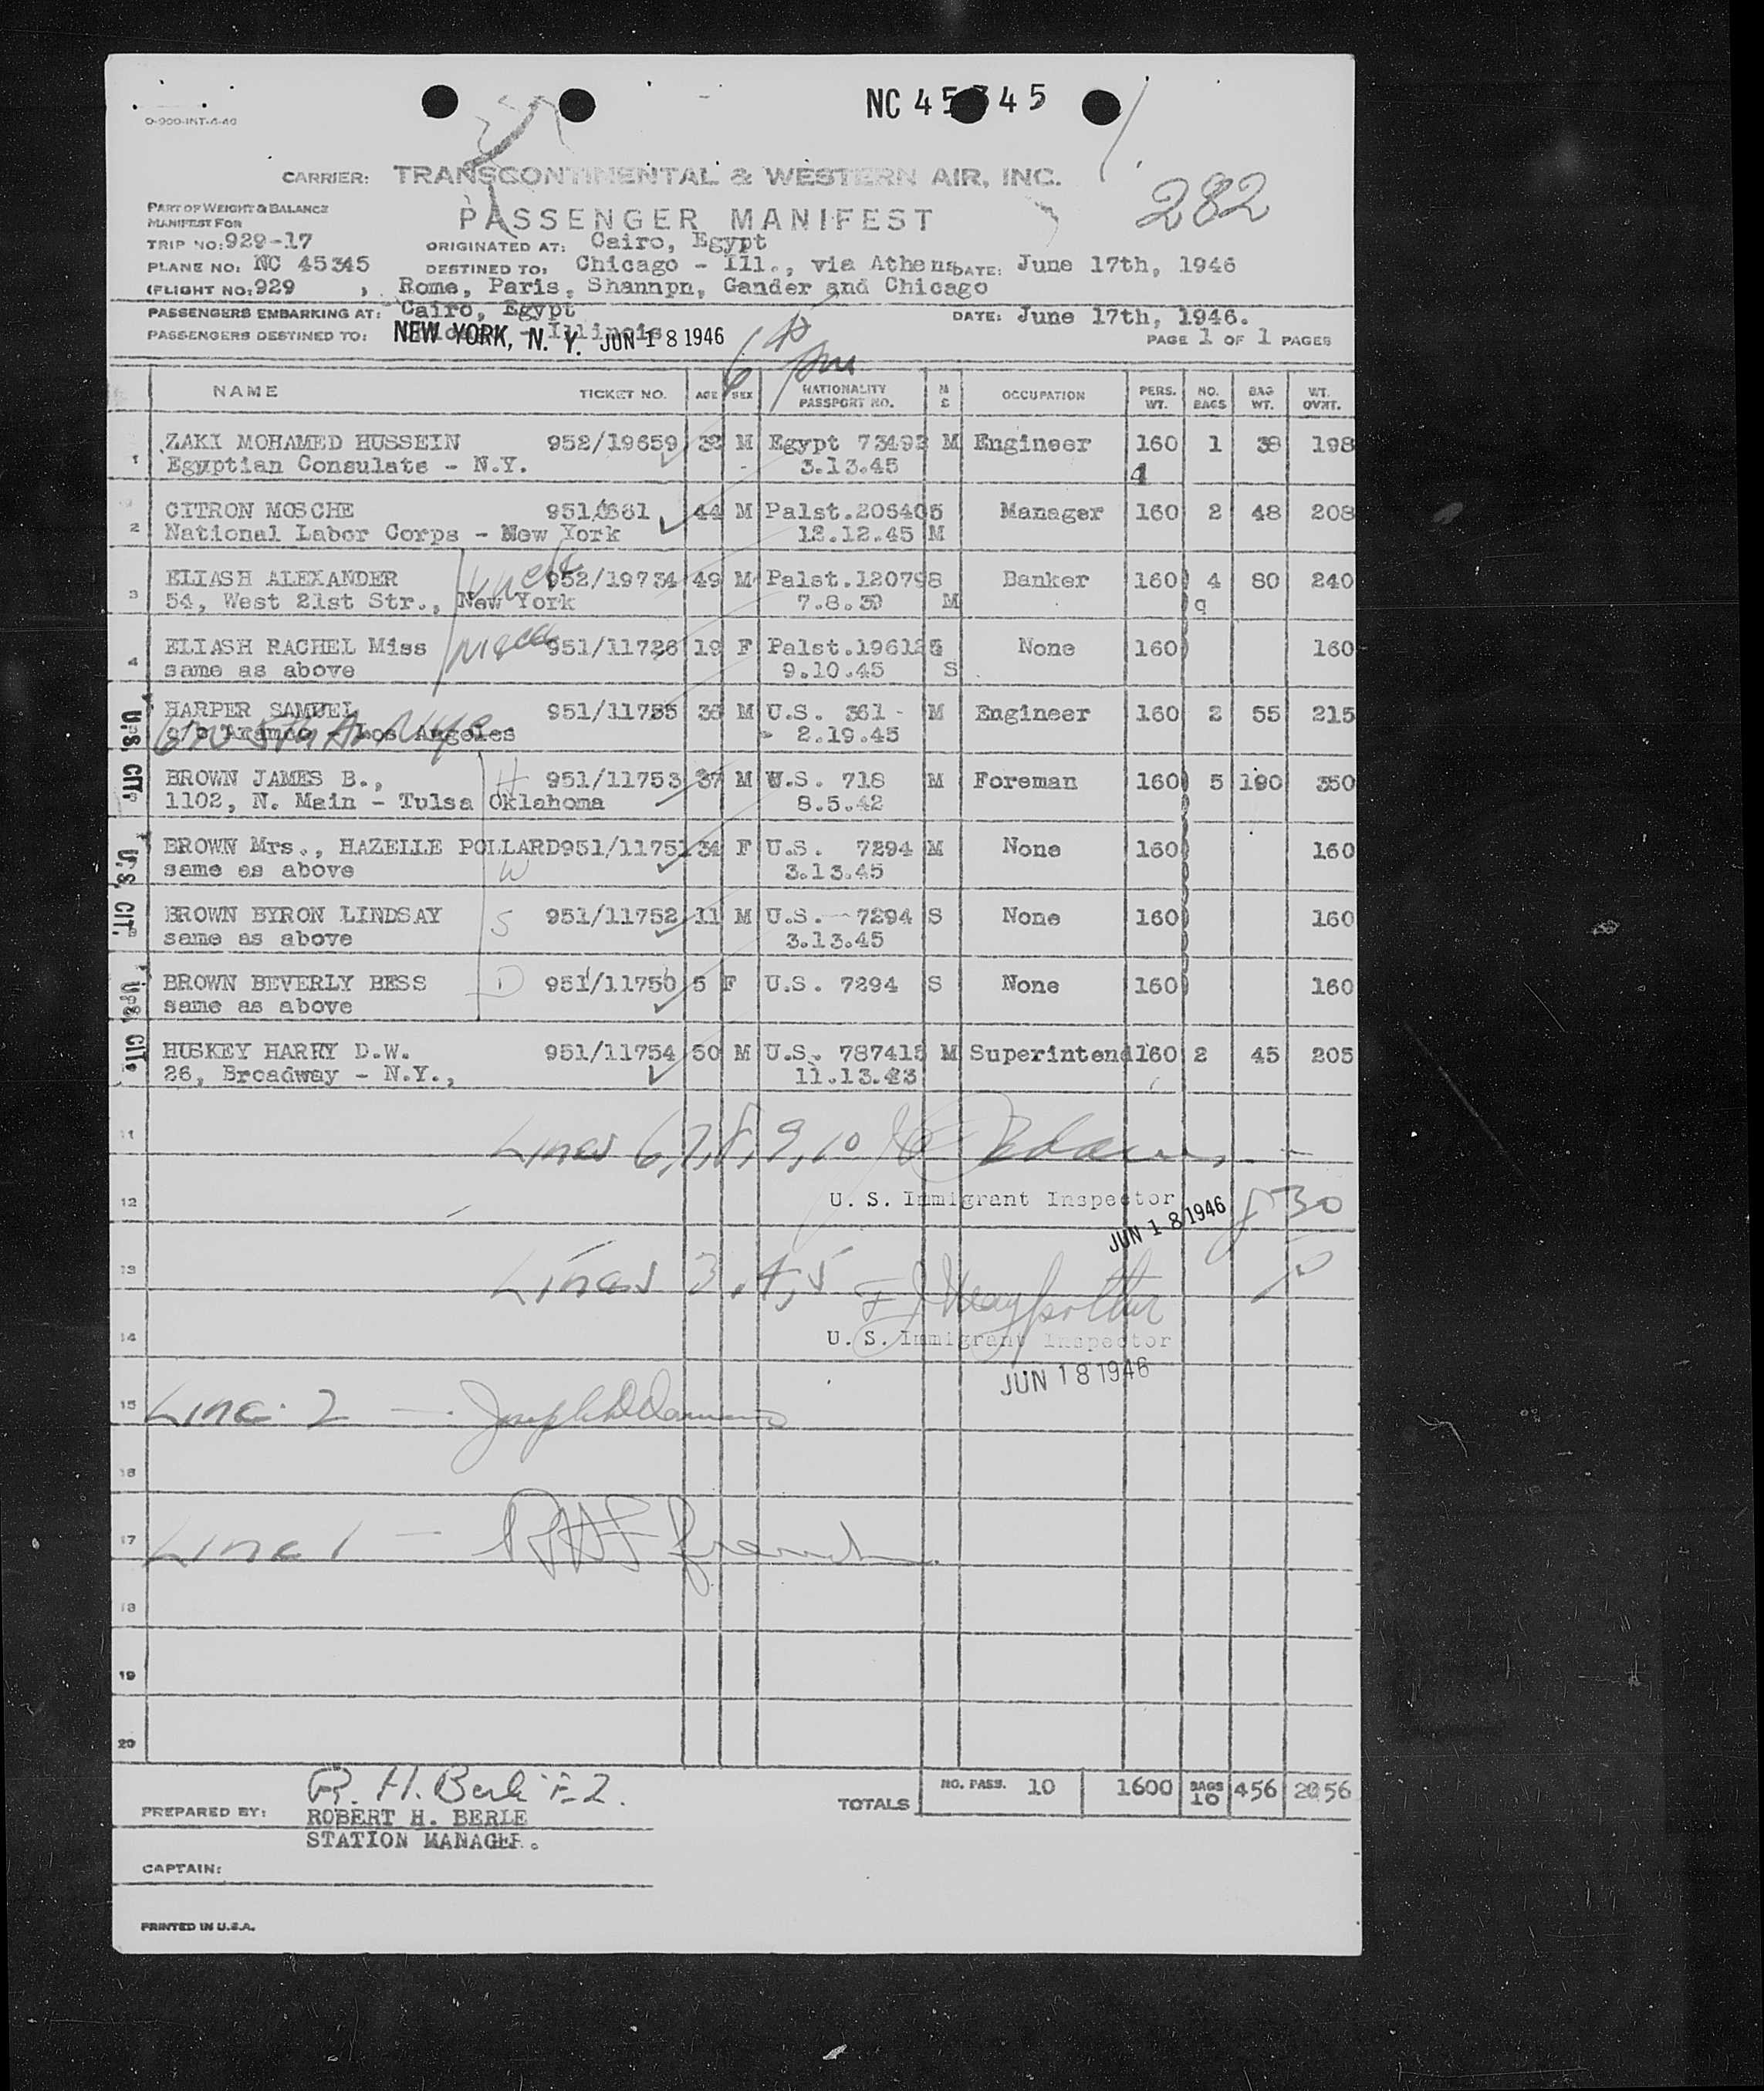 NC 45345
O-900-INT-4-46
CARRIER: TRANSCONTINENTAL & WESTERN AIR, INC.
282
PART OF WEIGHT & BALANCE
MANIFEST FOR
PASSENGER MANIFEST
TRIP NO: 929-17 ORIGINATED AT: Cairo, Egypt
PLANE NO: NC 45345 DESTINED TO: Chicago - Ill., via Athens DATE: June 17th, 1946
(FLIGHT NO: 929 ) Rome, Paris, Shannpn, Gander and Chicago
PASSENGERS EMBARKING AT: Cairo, Egypt DATE: June 17th, 1946.
PASSENGERS DESTINED TO: NEW YORK, N. Y. JUN 18 1946 Illinois PAGE 1 OF 1 PAGES
NAME TICKET NO. AGE SEX NATIONALITY PASSPORT NO. M S OCCUPATION PERS. WT. NO. BAGS BAG WT. WT. OVHT.
1 ZAKI MOHAMED HUSSEIN 952/19659 32 M Egypt 73493 M Engineer 160 1 38 198
Egyptian Consulate - N.Y. 3.13.45
2 CITRON MOSCHE 951 661 44 M Palst.206405 Manager 160 2 48 208
National Labor Corps - New York 12.12.45 M
3 ELIASH ALEXANDER Uncle 952/19734 49 M Palst.120798 Banker 160 4 80 240
54, West 21st Str., New York 7.8.39 M
4 ELIASH RACHEL Miss Niece 951/11726 19 F Palst.196125 None 160 160
same as above 9.10.45 S
U.S. CIT. HARPER SAMUEL 951/11755 36 M U.S. 361 - M Engineer 160 2 55 215
c/o Aramco - Los Angeles 2.19.45
630 5th Av NYC
U.S. CIT. BROWN JAMES B., H 951/11753 37 M U.S. 718 M Foreman 160 5 190 350
1102, N. Main - Tulsa Oklahoma 8.5.42
BROWN Mrs., HAZELLE POLLARD 951/11751 34 F U.S. 7294 M None 160 160
same as above W 3.13.45
U.S. CIT. BROWN BYRON LINDSAY S 951/11752 11 M U.S. 7294 S None 160 160
same as above 3.13.45
BROWN BEVERLY BESS D 951/11750 5 F U.S. 7294 S None 160 160
same as above
U.S. CIT. HUSKEY HARRY D.W. 951/11754 50 M U.S. 787415 M Superintend 160 2 45 205
26, Broadway - N.Y., 11.13.43
11 Lines 6,7,8,9,10
12 U. S. Immigrant Inspector
JUN 18 1946 830
13 Lines 3,4,5
14 U. S. Immigrant Inspector
JUN 18 1946
15 Line 2 —
16
17 Line 1 — French
18
19
20
TOTALS NO. PASS. 10 1600 BAGS 16 456 2056
R. H. Berle
PREPARED BY: ROBERT H. BERLE
STATION MANAGER.
CAPTAIN:
PRINTED IN U.S.A.